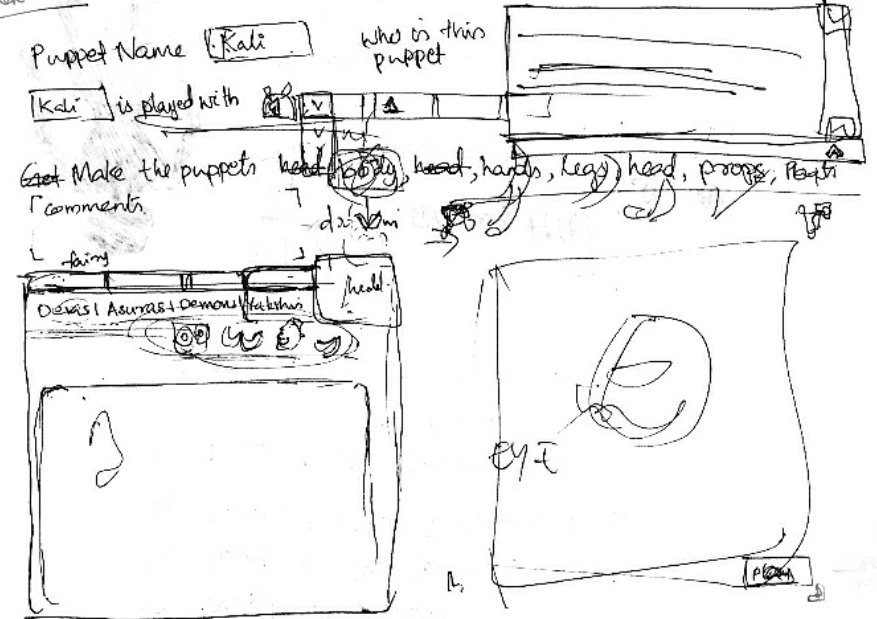 Puppet Name Kali
who is this
puppet
Kali is played with
Make the puppets body, head, hands, legs, head, props,
comments
fairy
Devas | Asuras + Demons | Yakshis
head
EYE
play